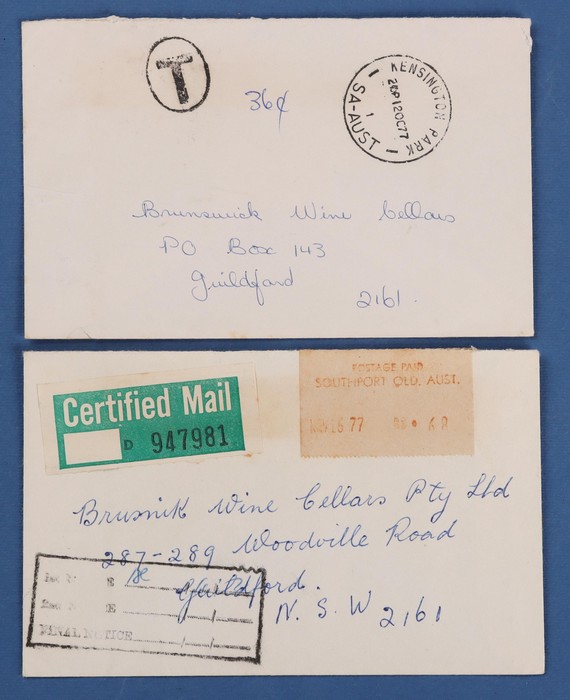 T
36¢
KENSINGTON PARK
12OC77
1
SA-AUST
Brunswick Wine Cellars
PO Box 143
Guildford
2161.
Certified Mail
D 947981
POSTAGE PAID
SOUTHPORT QLD. AUST.
16 77
Brusnik Wine Cellars Pty Ltd
287-289 Woodville Road
Guildford.
N. S. W 2161
FINAL NOTICE / /